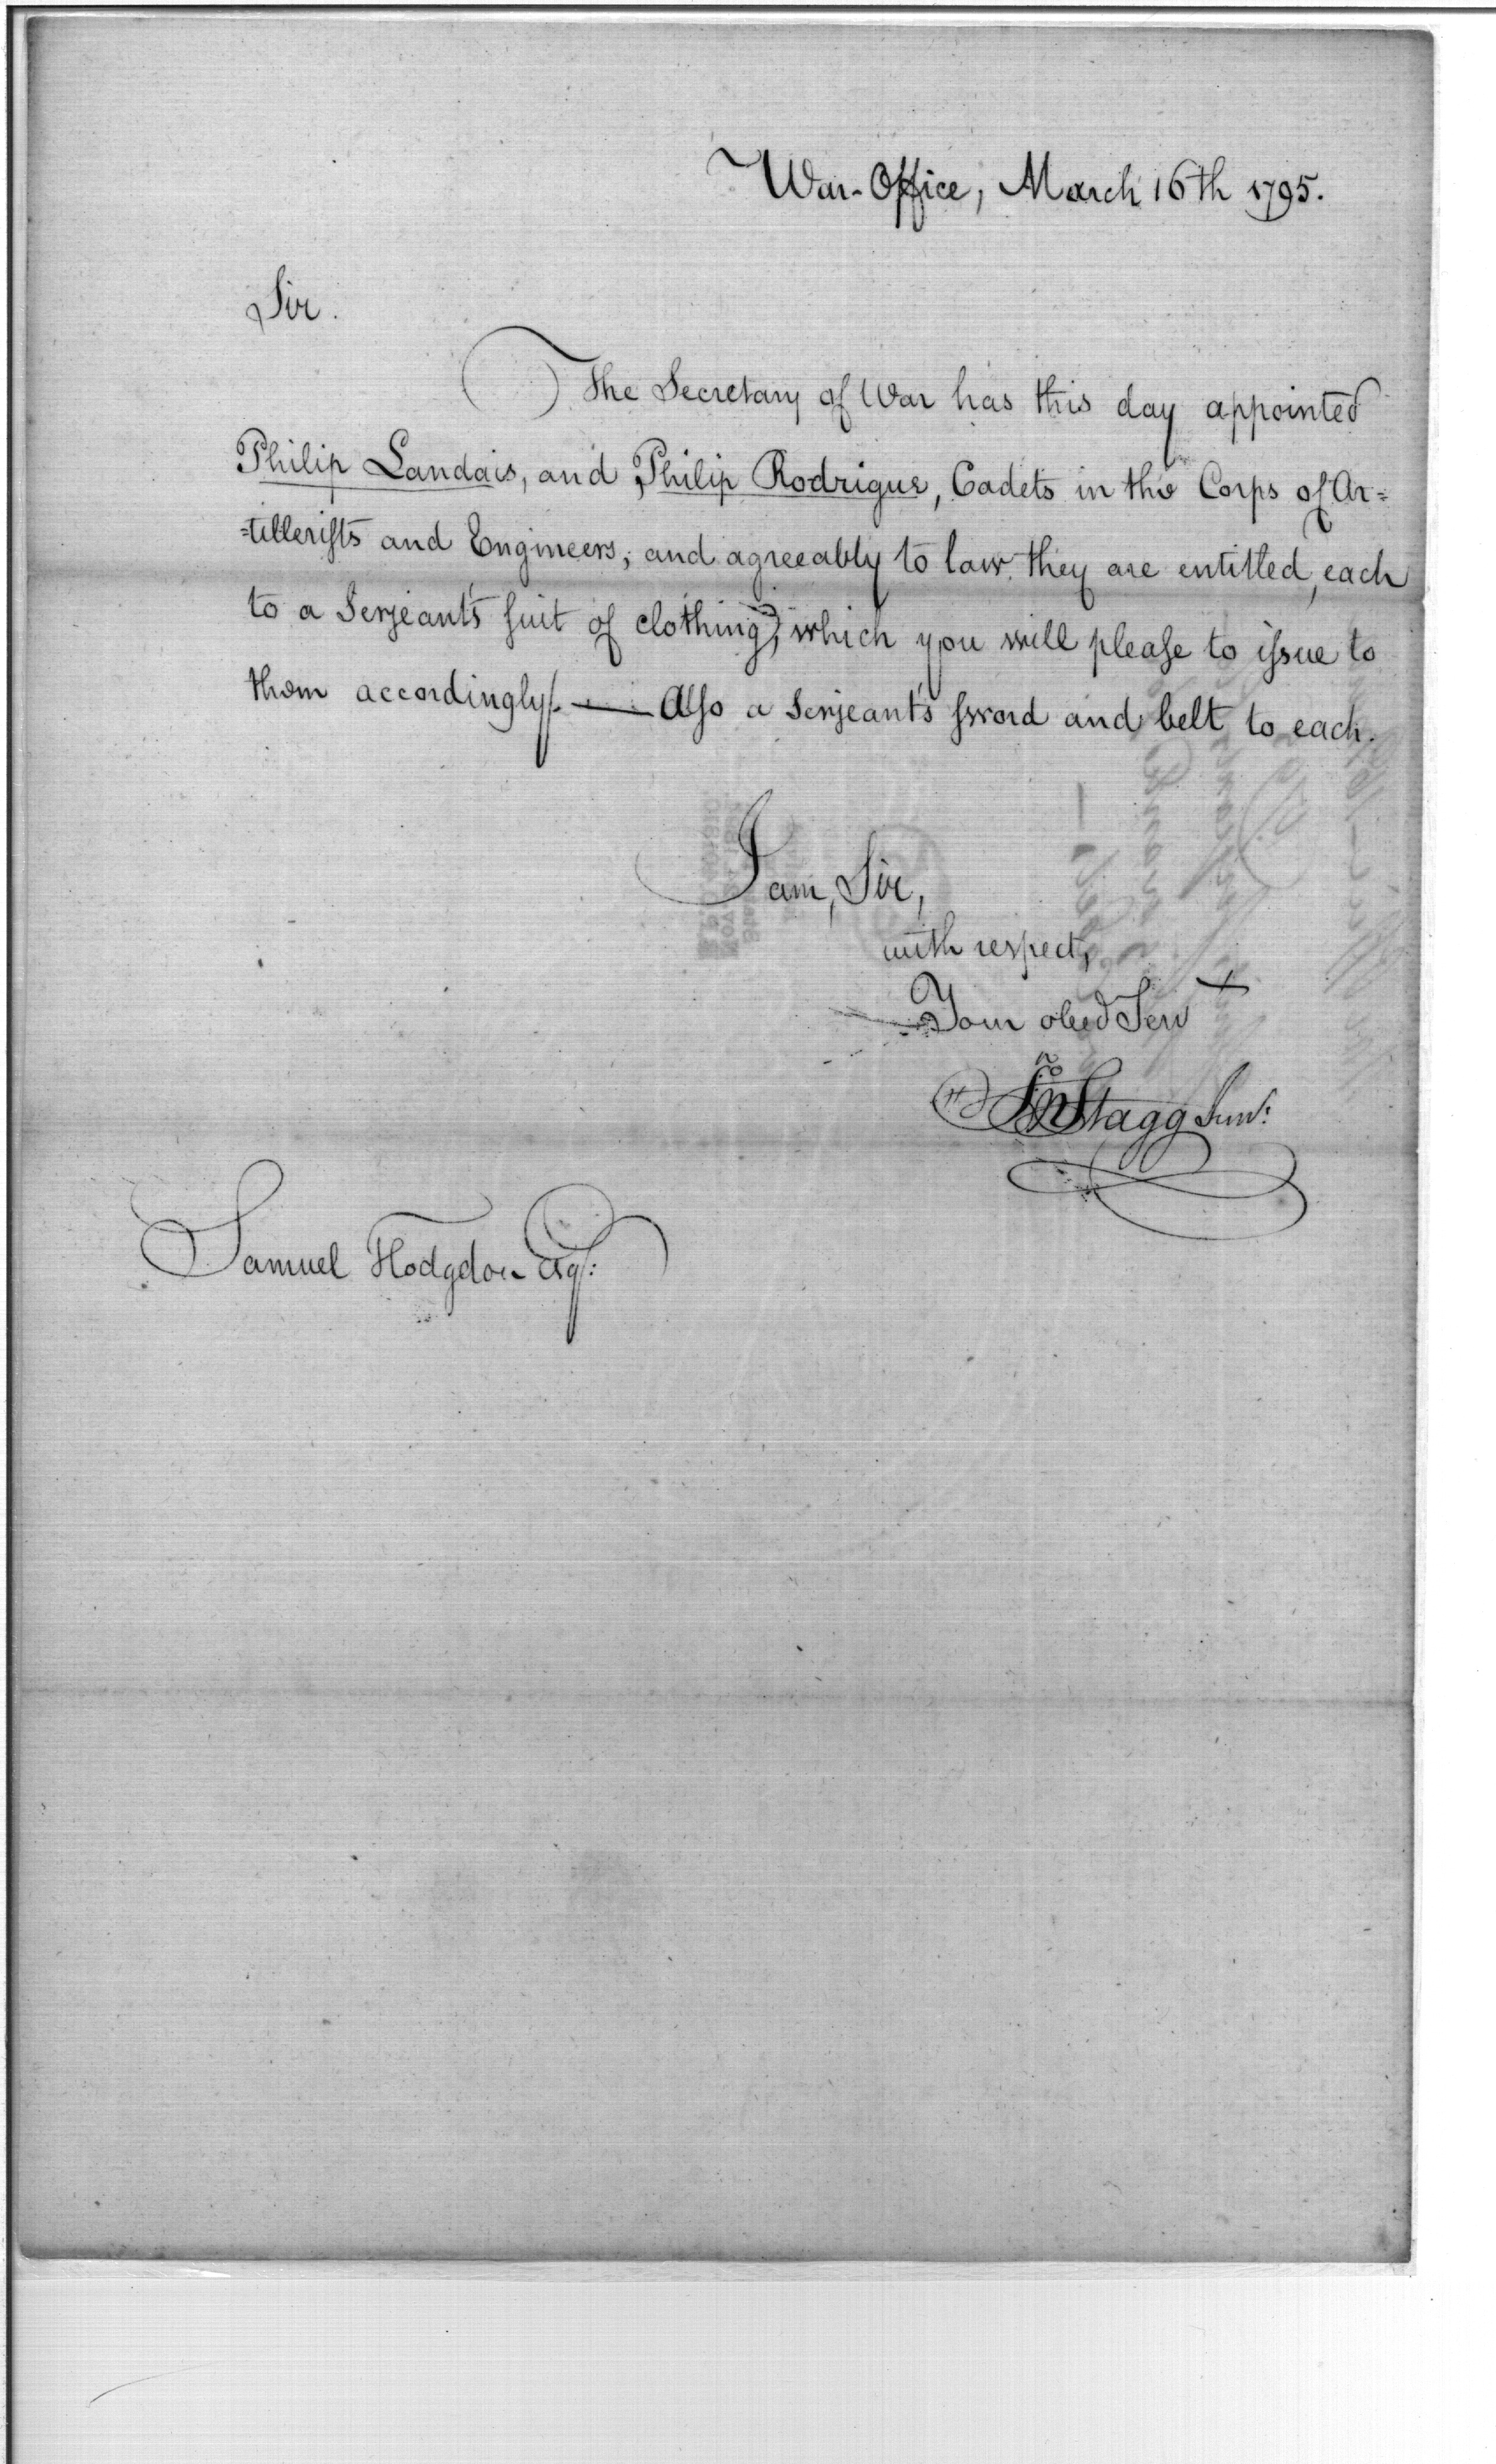 War-Office, March 16th 1795.
Sir.
The Secretary of War has this day appointed
Philip Landais, and Philip Rodrigue, Cadets in the Corps of Ar=
=tillerists and Engineers; and agreeably to law they are entitled, each
to a Serjeant's suit of clothing, which you will please to issue to
them accordingly. — Also a Serjeant's sword and belt to each.
I am, Sir,
with respect,
Your obed Servt
Jno Stagg Junr:
Samuel Hodgdon Esqr: